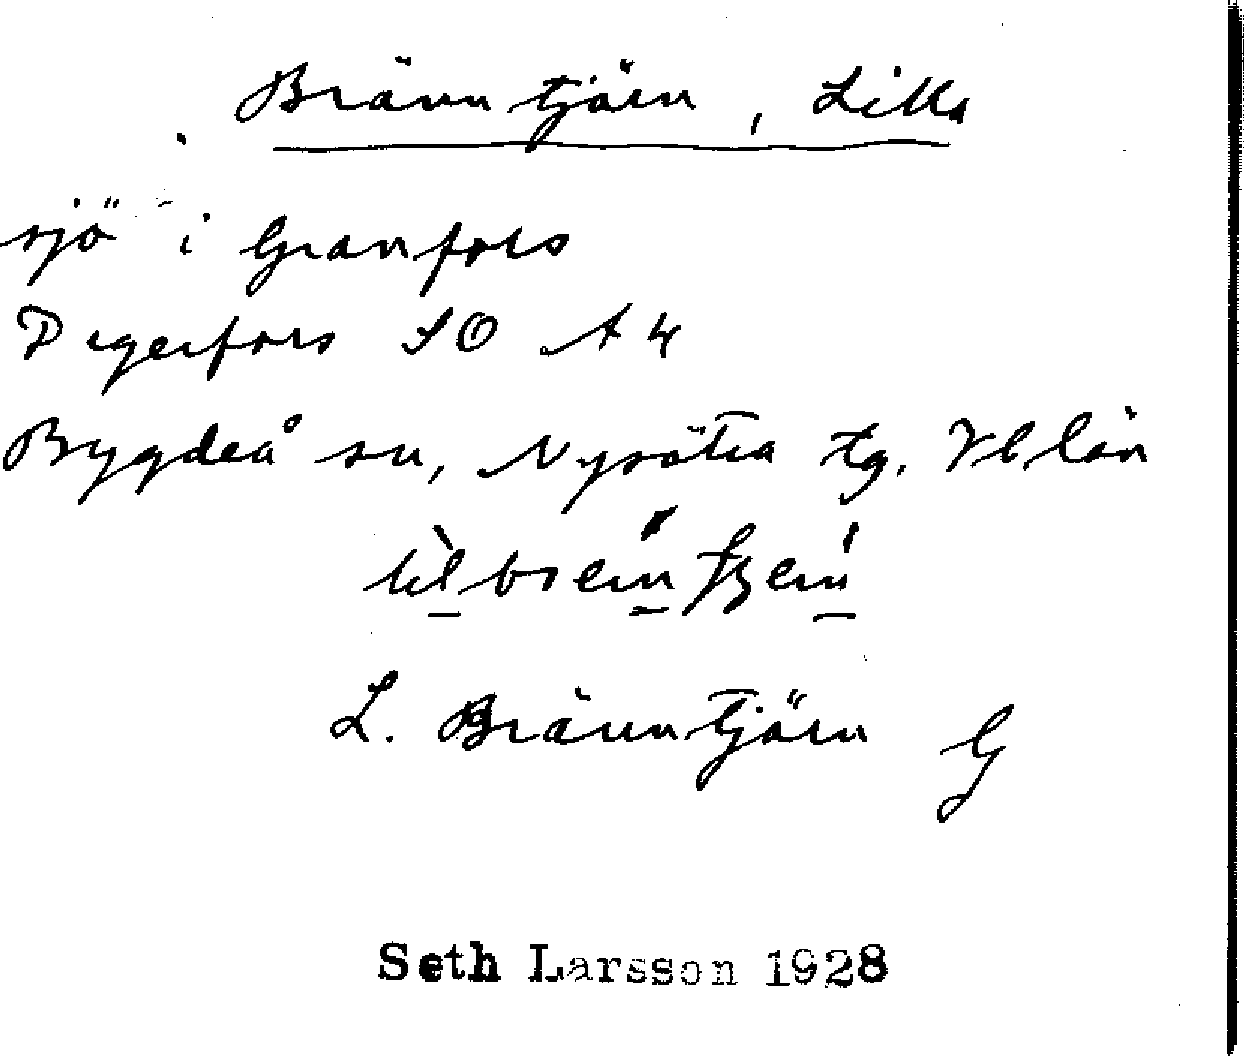 Bränntjärn, Lilla
sjö i Granfors
Degerfors SO A 4
Bygdeå sn, Nysätra tg. Vb län
L. Bränntjärn G
Seth Larsson 1928